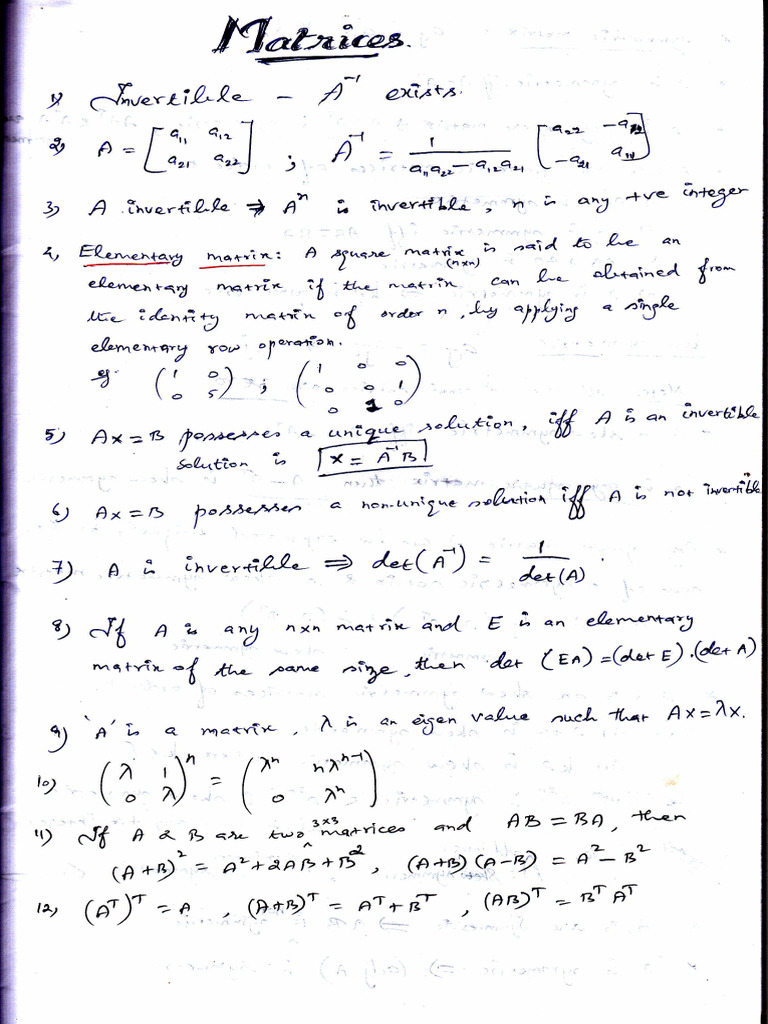 Matrices.
1) Invertible - A⁻¹ exists.
2) A = [a₁₁ a₁₂; a₂₁ a₂₂] ; A⁻¹ = 1/(a₁₁a₂₂ - a₁₂a₂₁) [a₂₂ -a₁₂; -a₂₁ a₁₁]
3) A invertible ⇒ Aⁿ is invertible, n is any +ve integer
4) Elementary matrix: A square matrix is said to be an
elementary matrix if the matrix (n×n) can be obtained from
the identity matrix of order n, by applying a single
elementary row operation.
eg (1 0; 0 5) ; (1 0 0; 0 0 1; 0 1 0)
5) Ax = B possesses a unique solution, iff A is an invertible
solution is x = A⁻¹B
6) Ax = B possesses a non-unique solution iff A is not invertible
7) A is invertible ⇒ det(A⁻¹) = 1/det(A).
8) If A is any n×n matrix and E is an elementary
matrix of the same size, then det (EA) = (det E).(det A)
9) 'A' is a matrix, λ is an eigen value such that Ax = λx.
10) (λ 1; 0 λ)ⁿ = (λⁿ nλⁿ⁻¹; 0 λⁿ)
11) If A & B are two 3×3 matrices and AB = BA, then
(A+B)² = A² + 2AB + B², (A+B)(A-B) = A² - B²
12) (Aᵀ)ᵀ = A, (A+B)ᵀ = Aᵀ + Bᵀ, (AB)ᵀ = BᵀAᵀ